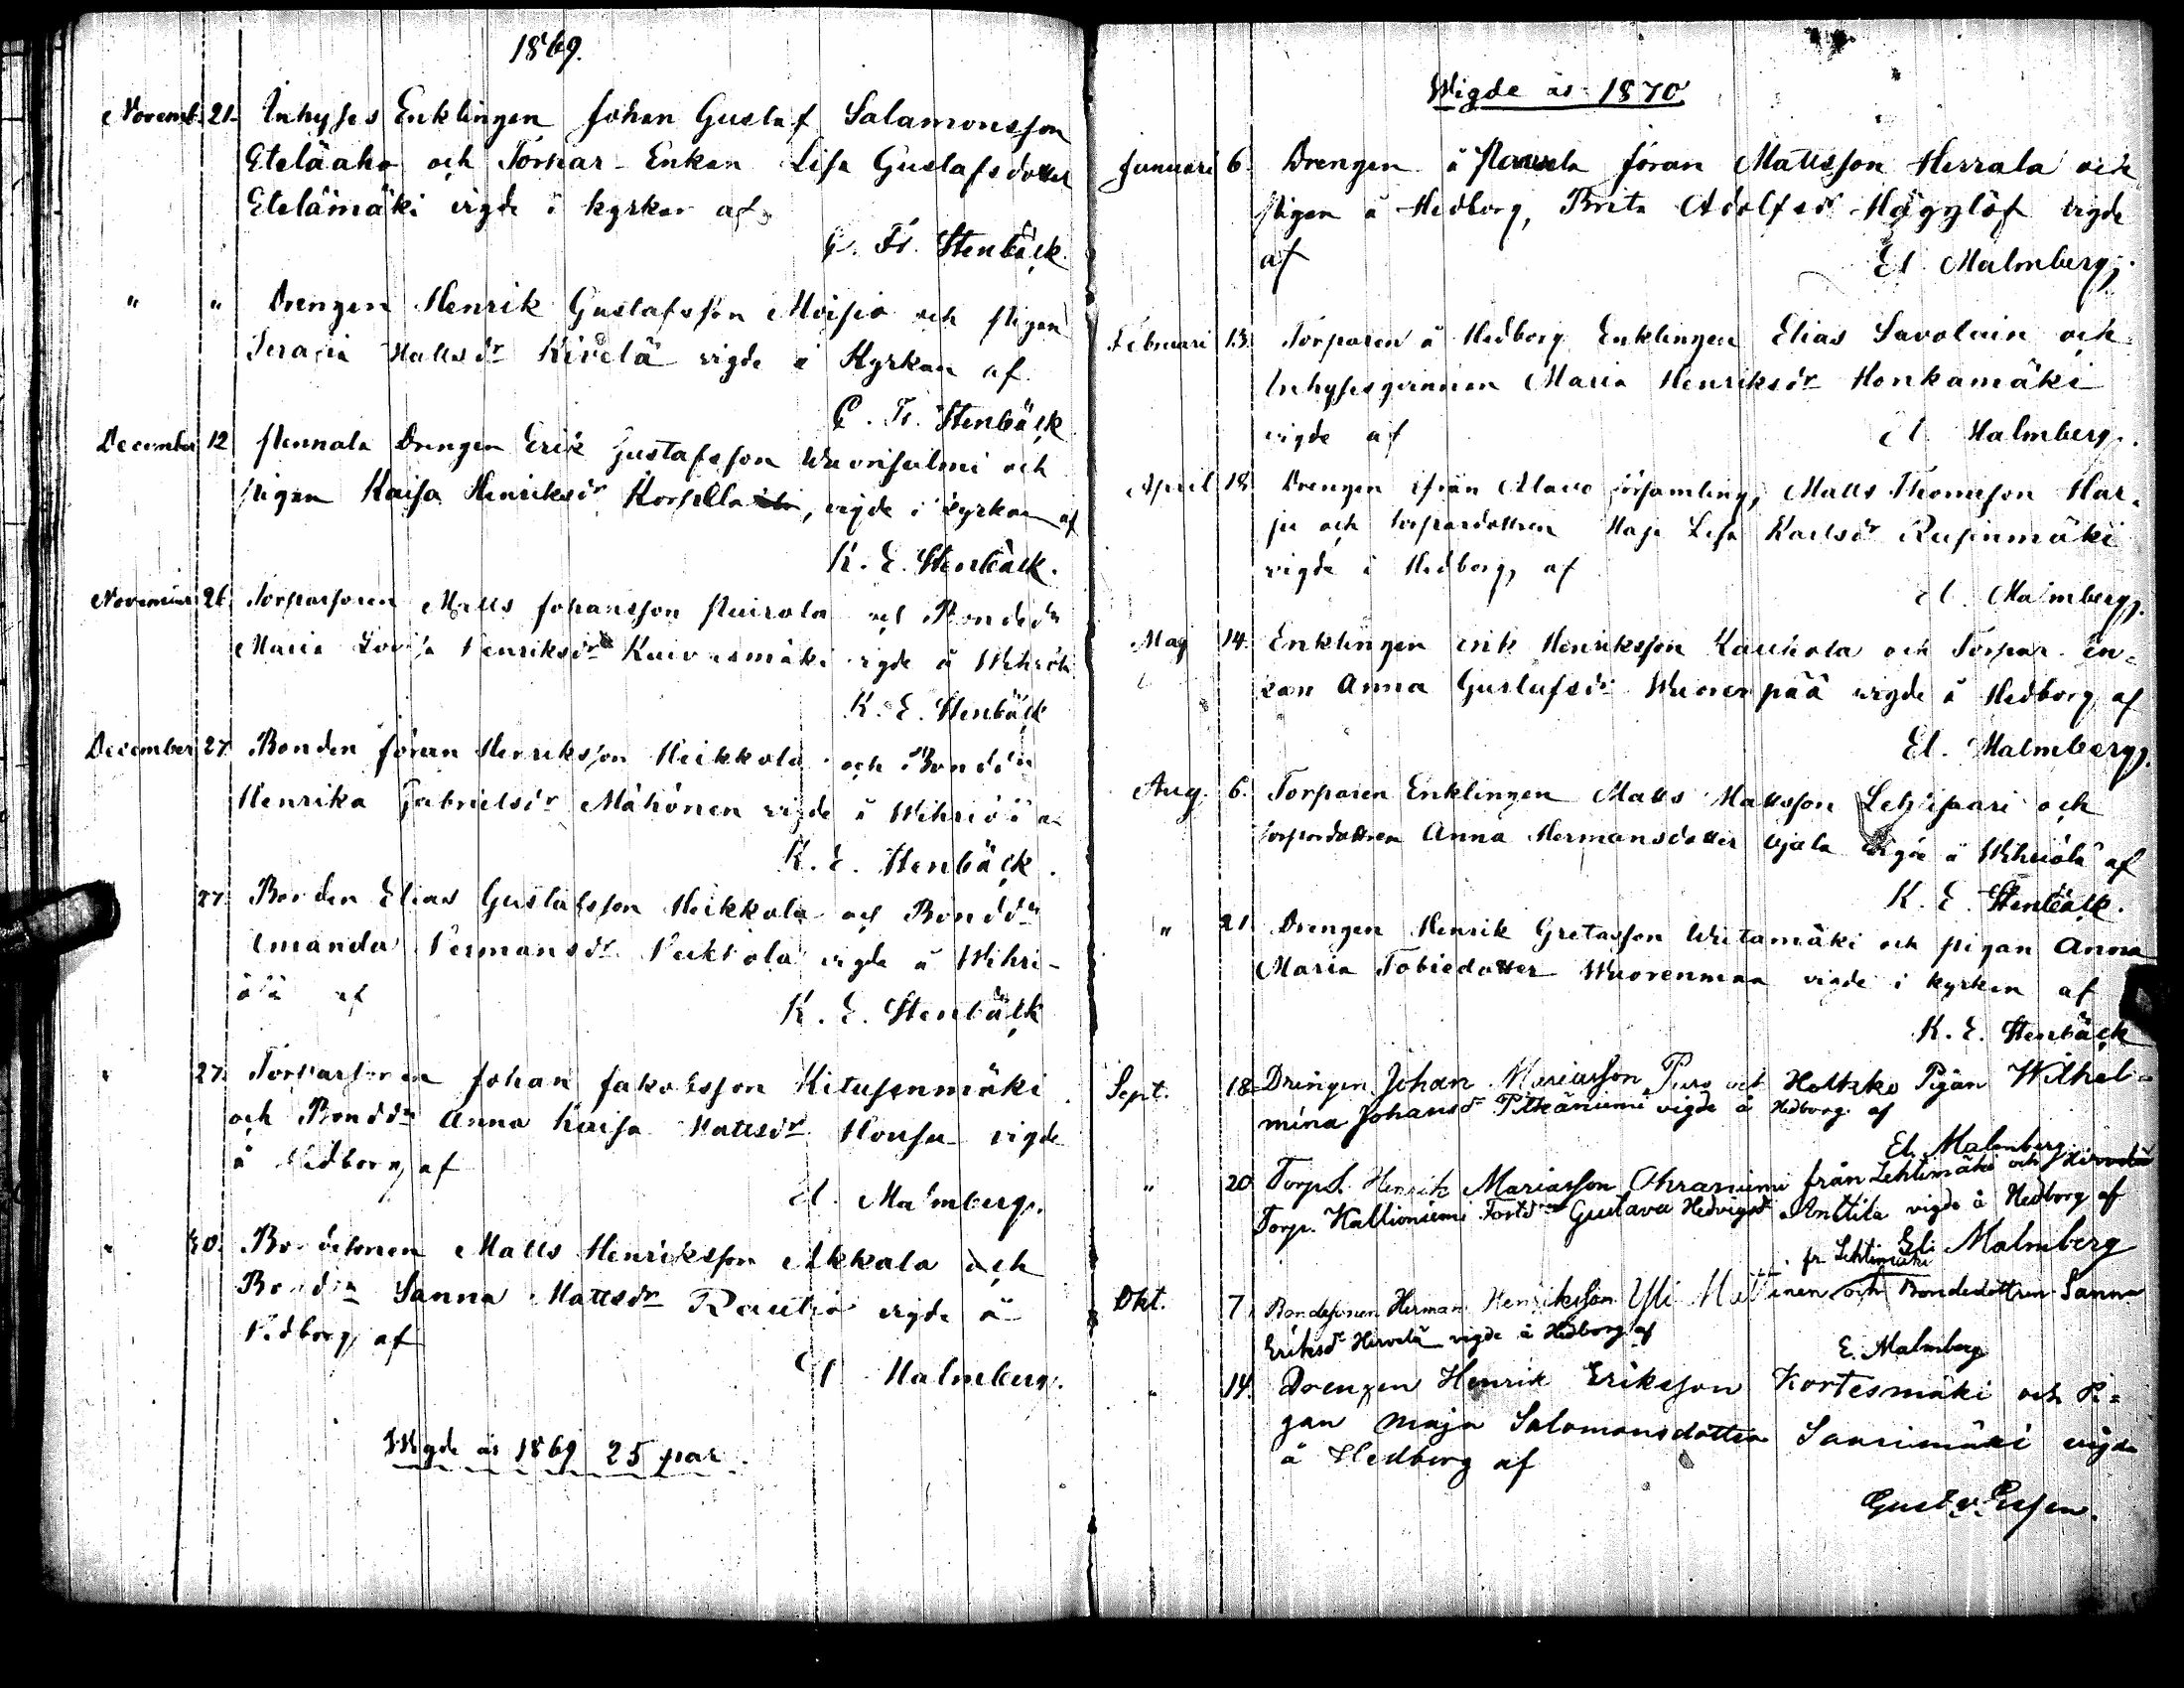 1869.
Novemb. 21. Inhyses Enklingen Johan Gustaf Salamonsson
Eteläaho och Torpar-Enkan Lisa Gustafsdotter
Etelämäki vigde i kyrkan af
C. Fr. Stenbäck.
" " Drengen Henrik Gustafsson Moisio och pigan
Serafia Mattsdr Kivelä vigde i Kyrkan af
C. Fr. Stenbäck
December 12 Pennala Drengen Erik Gustafsson Wuorisalmi och
pigan Kaisa Henriksdr Korpela, vigde i kyrkan af
K. E. Stenbäck.
November 26. Torparsonen Matts Johansson Puirola och Bondedr
Maria Lovisa Henriksdr vigde å
K. E. Stenbäck
December 27. Bonden Jöran Henriksson Heikkola och Bonddn
Henrika Gabrielsdr Mähönen vigde å Wihriälä
K. E. Stenbäck.
27. Bonden Elias Gustafsson Heikkola och Bonddn
Amanda Hermansdr vigde å Wihri-
älä af
K. E. Stenbäck
" 27. Torparsonen Johan Jakobsson Kitusenmäki
och Bonddn Anna Kaisa Mattsdr Housu vigde
å Hedborg af
El. Malmberg.
" 30. Bondesonen Matts Henriksson Akkala och
Bonddn Sanna Mattsdr Rautio vigde å
Hedborg af
El Malmberg.
Wigde år 1869 25 par.
Wigde år 1870
Januari 6. Drengen å Jöran Mattsson Herrala och
pigan å Hedborg, Brita Adolfsdr Häggylöf vigde
af El Malmberg.
Februari 13. Torparen å Hedborg Enklingen Elias Savolain och
Inhysesqvinnan Maria Henriksdr Honkamäki
vigde af El. Malmberg.
April 18 Drengen ifrån Alavo församling, Matts Thomasson Har-
ju och torpardottren Maja Lisa Karlsdr Rusinmäki
vigde i Hedborg af
El. Malmberg.
Maj 14. Enklingen Erik Henriksson Kaukola och Torpar-En-
kan Anna Gustafsdr Wuorenpää vigde å Hedborg af
El. Malmberg.
Aug. 6. Torparen Enklingen Matts Mattsson och
torpardottren Anna Hermansdotter Ojala vigde å Wihriälä af
K. E. Stenbäck.
" 21. Drengen Henrik Gretasson Wiitamäki och pigan Anna
Maria Tobiedotter Wuorenmaa vigde i kyrkan af
K. E. Stenbäck
Sept. 18 Drängen Johan Mariasson Puro och Pigan Wilhel-
mina Johansdr Pitkäniemi vigde å Hedborg af
El. Malmberg
" 20 Torps. Henrik Mariasson Ohraniemi från Lehtimäki och
Torp. Kallioniemi Gustava Hedvigsdr Anttila vigde å Hedborg af
El. Malmberg
fr Lehtimäki
Okt. 7. Bondesonen Herman Henriksson Yli Mattinen och Bondedottren Sanna
Eriksdr Hirvelä vigde å Hedborg af
E. Malmberg
" 14. Drengen Henrik Eriksson Kortesmäki och Pi-
gan Maja Salomonsdotter Saarimäki vigde
å Hedborg af